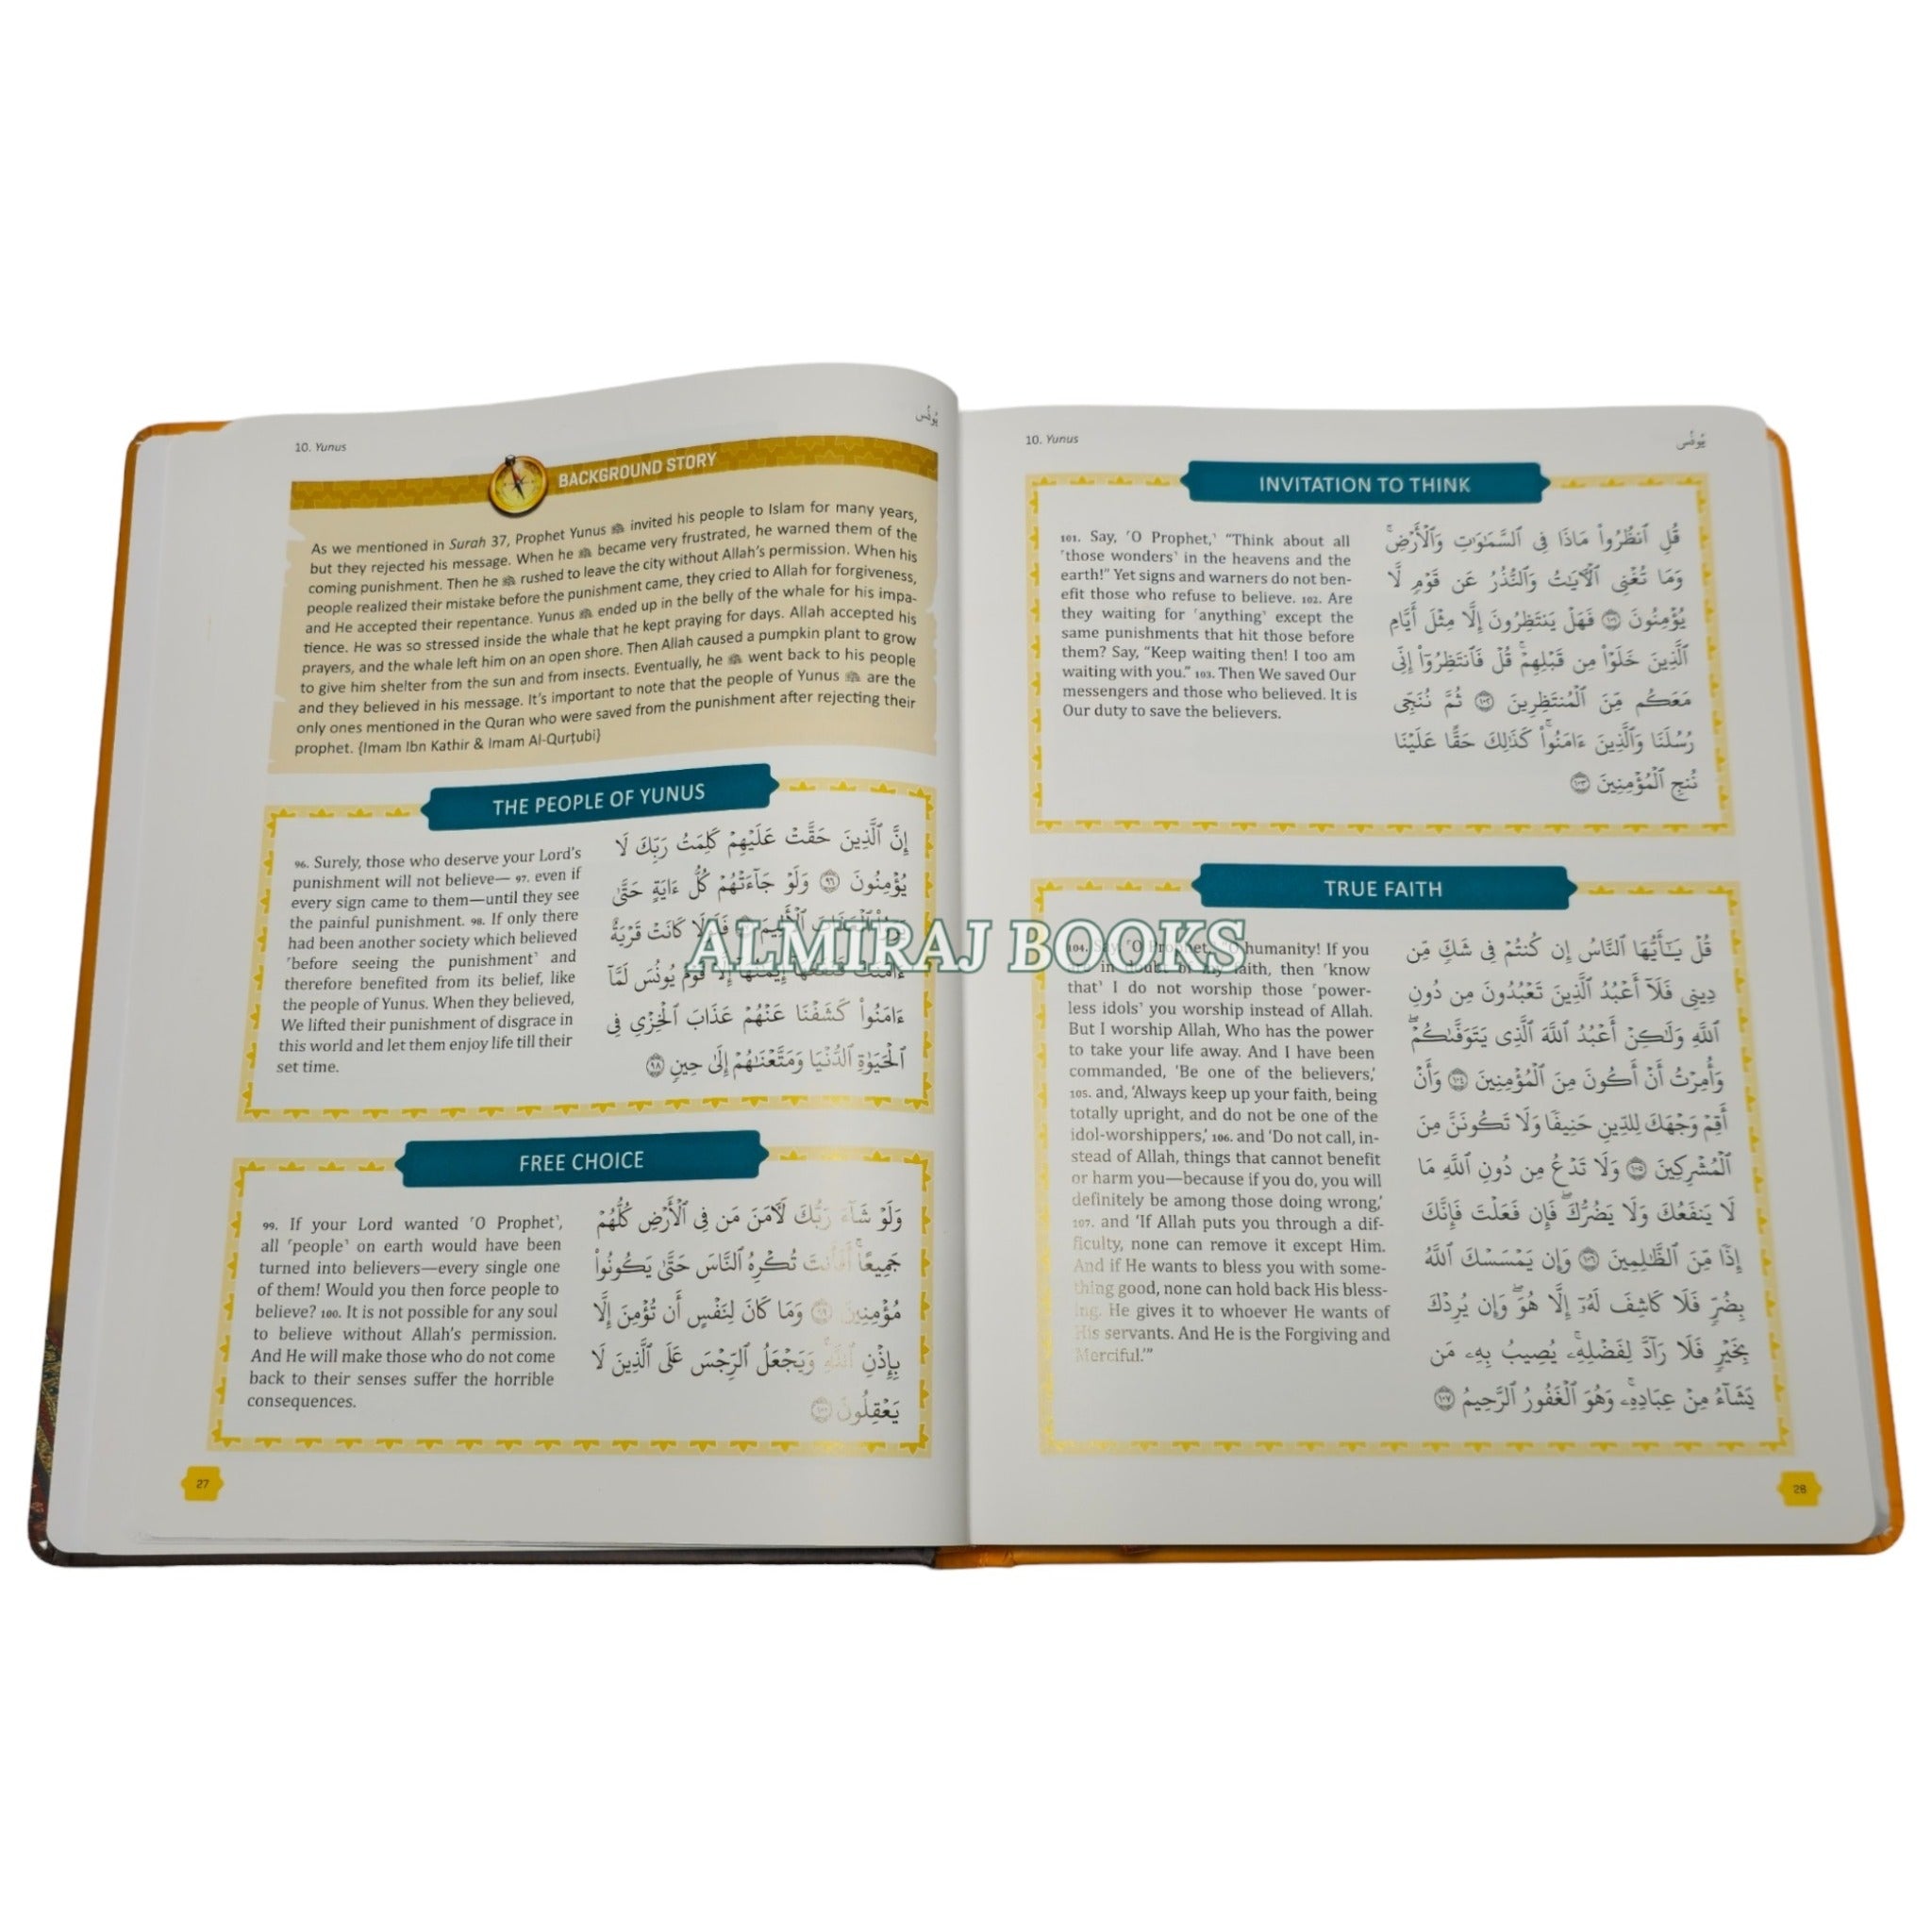 10. Yunus
يُونُس
BACKGROUND STORY
As we mentioned in Surah 37, Prophet Yunus invited his people to Islam for many years,
but they rejected his message. When he became very frustrated, he warned them of the
coming punishment. Then he rushed to leave the city without Allah's permission. When his
people realized their mistake before the punishment came, they cried to Allah for forgiveness,
and He accepted their repentance. Yunus ended up in the belly of the whale for his impa-
tience. He was so stressed inside the whale that he kept praying for days. Allah accepted his
prayers, and the whale left him on an open shore. Then Allah caused a pumpkin plant to grow
to give him shelter from the sun and from insects. Eventually, he went back to his people
and they believed in his message. It's important to note that the people of Yunus are the
only ones mentioned in the Quran who were saved from the punishment after rejecting their
prophet. {Imam Ibn Kathir & Imam Al-Qurṭubi}
THE PEOPLE OF YUNUS
96. Surely, those who deserve your Lord's
punishment will not believe— 97. even if
every sign came to them—until they see
the painful punishment. 98. If only there
had been another society which believed
˹before seeing the punishment˺ and
therefore benefited from its belief, like
the people of Yunus. When they believed,
We lifted their punishment of disgrace in
this world and let them enjoy life till their
set time.
إِنَّ ٱلَّذِينَ حَقَّتْ عَلَيْهِمْ كَلِمَتُ رَبِّكَ لَا
يُؤْمِنُونَ ٩٦ وَلَوْ جَآءَتْهُمْ كُلُّ ءَايَةٍ حَتَّىٰ
يَرَوُا۟ ٱلْعَذَابَ ٱلْأَلِيمَ فَلَوْلَا كَانَتْ قَرْيَةٌ
ءَامَنَتْ فَنَفَعَهَآ إِيمَـٰنُهَآ إِلَّا قَوْمَ يُونُسَ لَمَّآ
ءَامَنُوا۟ كَشَفْنَا عَنْهُمْ عَذَابَ ٱلْخِزْىِ فِى
ٱلْحَيَوٰةِ ٱلدُّنْيَا وَمَتَّعْنَـٰهُمْ إِلَىٰ حِينٍ ٩٨
FREE CHOICE
99. If your Lord wanted ˹O Prophet˺,
all ˹people˺ on earth would have been
turned into believers—every single one
of them! Would you then force people to
believe? 100. It is not possible for any soul
to believe without Allah's permission.
And He will make those who do not come
back to their senses suffer the horrible
consequences.
وَلَوْ شَآءَ رَبُّكَ لَـَٔامَنَ مَن فِى ٱلْأَرْضِ كُلُّهُمْ
جَمِيعًا ۚ أَفَأَنتَ تُكْرِهُ ٱلنَّاسَ حَتَّىٰ يَكُونُوا۟
مُؤْمِنِينَ ٩٩ وَمَا كَانَ لِنَفْسٍ أَن تُؤْمِنَ إِلَّا
بِإِذْنِ ٱللَّهِ ۚ وَيَجْعَلُ ٱلرِّجْسَ عَلَى ٱلَّذِينَ لَا
يَعْقِلُونَ ١٠٠
27
10. Yunus
يُونُس
INVITATION TO THINK
101. Say, ˹O Prophet,˺ "Think about all
˹those wonders˺ in the heavens and the
earth!" Yet signs and warners do not ben-
efit those who refuse to believe. 102. Are
they waiting for ˹anything˺ except the
same punishments that hit those before
them? Say, "Keep waiting then! I too am
waiting with you." 103. Then We saved Our
messengers and those who believed. It is
Our duty to save the believers.
قُلِ ٱنظُرُوا۟ مَاذَا فِى ٱلسَّمَـٰوَٰتِ وَٱلْأَرْضِ ۚ
وَمَا تُغْنِى ٱلْـَٔايَـٰتُ وَٱلنُّذُرُ عَن قَوْمٍ لَّا
يُؤْمِنُونَ ١٠١ فَهَلْ يَنتَظِرُونَ إِلَّا مِثْلَ أَيَّامِ
ٱلَّذِينَ خَلَوْا۟ مِن قَبْلِهِمْ ۚ قُلْ فَٱنتَظِرُوٓا۟ إِنِّى
مَعَكُم مِّنَ ٱلْمُنتَظِرِينَ ١٠٢ ثُمَّ نُنَجِّى
رُسُلَنَا وَٱلَّذِينَ ءَامَنُوا۟ ۚ كَذَٰلِكَ حَقًّا عَلَيْنَا
نُنجِ ٱلْمُؤْمِنِينَ ١٠٣
TRUE FAITH
104. Say, ˹O Prophet,˺ "O humanity! If you
are in doubt of my faith, then ˹know
that˺ I do not worship those ˹power-
less idols˺ you worship instead of Allah.
But I worship Allah, Who has the power
to take your life away. And I have been
commanded, 'Be one of the believers,'
105. and, 'Always keep up your faith, being
totally upright, and do not be one of the
idol-worshippers,' 106. and 'Do not call, in-
stead of Allah, things that cannot benefit
or harm you—because if you do, you will
definitely be among those doing wrong,'
107. and 'If Allah puts you through a dif-
ficulty, none can remove it except Him.
And if He wants to bless you with some-
thing good, none can hold back His bless-
ing. He gives it to whoever He wants of
His servants. And He is the Forgiving and
Merciful.'"
قُلْ يَـٰٓأَيُّهَا ٱلنَّاسُ إِن كُنتُمْ فِى شَكٍّ مِّن
دِينِى فَلَآ أَعْبُدُ ٱلَّذِينَ تَعْبُدُونَ مِن دُونِ
ٱللَّهِ وَلَـٰكِنْ أَعْبُدُ ٱللَّهَ ٱلَّذِى يَتَوَفَّىٰكُمْ ۖ
وَأُمِرْتُ أَنْ أَكُونَ مِنَ ٱلْمُؤْمِنِينَ ١٠٤ وَأَنْ
أَقِمْ وَجْهَكَ لِلدِّينِ حَنِيفًا وَلَا تَكُونَنَّ مِنَ
ٱلْمُشْرِكِينَ ١٠٥ وَلَا تَدْعُ مِن دُونِ ٱللَّهِ مَا
لَا يَنفَعُكَ وَلَا يَضُرُّكَ ۖ فَإِن فَعَلْتَ فَإِنَّكَ
إِذًا مِّنَ ٱلظَّـٰلِمِينَ ١٠٦ وَإِن يَمْسَسْكَ ٱللَّهُ
بِضُرٍّ فَلَا كَاشِفَ لَهُۥٓ إِلَّا هُوَ ۖ وَإِن يُرِدْكَ
بِخَيْرٍ فَلَا رَآدَّ لِفَضْلِهِۦ ۚ يُصِيبُ بِهِۦ مَن
يَشَآءُ مِنْ عِبَادِهِۦ ۚ وَهُوَ ٱلْغَفُورُ ٱلرَّحِيمُ ١٠٧
28
ALMIRAJ BOOKS